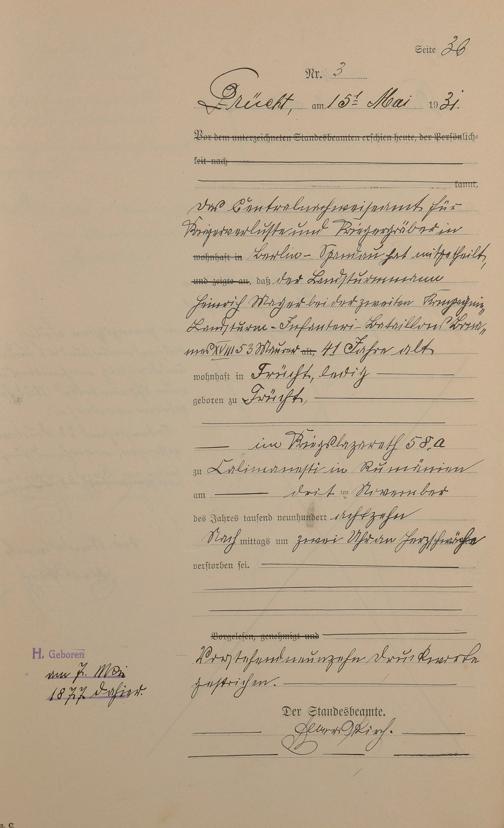 Seite 36
Nr. 3
Frücht, am 15t Mai 1931.
Vor dem unterzeichneten Standesbeamten erschien heute, der Persönlich-
keit nach
kannt,
das Centralnachweiseamt für
Kriegerverluste und Kriegergräber in
wohnhaft in Berlin - Spandau hat mitgetheilt,
und zeigte an, daß der Landsturmmann
Heinrich Mayer bei der zweiten Kompagnie
Landsturm-Infanteri-Bataillons
XVIII 53 Maurer alt, 41 Jahre alt
wohnhaft in Frücht, ledig
geboren zu Frücht,
im Kriegslazareth 58.a
zu Calimanesti in Rumänien
am November
des Jahres tausend neunhundert achtzehn
Nach mittags um zwei Uhr an Herzschwäche
verstorben sei.
Vorgelesen, genehmigt und
Vorstehend neunzehn Druckworte
gestrichen.
Der Standesbeamte.
H. Geboren
am 7. Mai
1877 dahier.